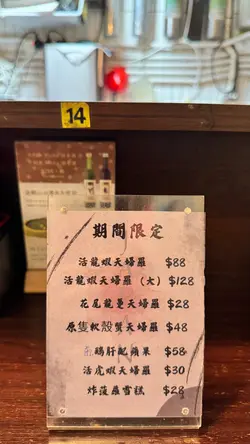 14
期間限定
活龍蝦天婦羅 $88
活龍蝦天婦羅（大） $128
花尾龍躉天婦羅 $28
原隻軟殼蟹天婦羅 $48
鵝肝配蘋果 $58
活虎蝦天婦羅 $30
炸菠蘿雪糕 $28